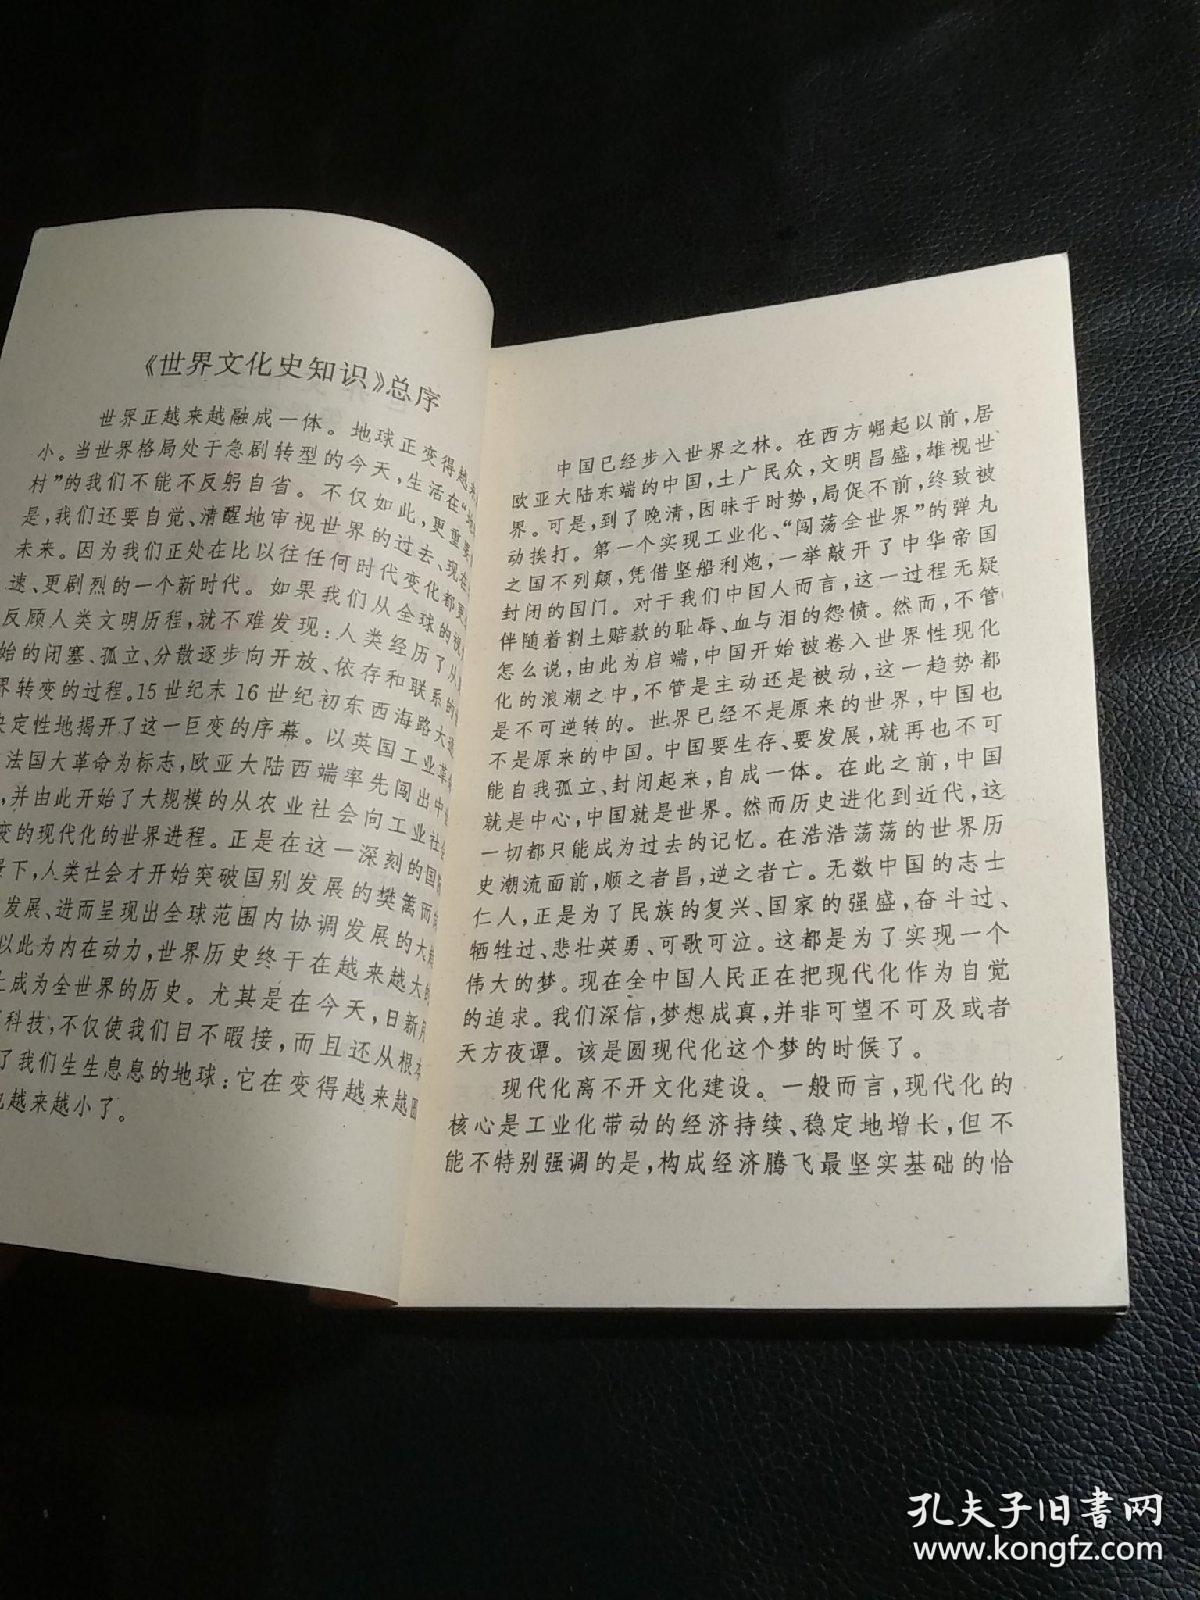 《世界文化史知识》总序
世界正越来越融成一体。地球正变得越来
小。当世界格局处于急剧转型的今天，生活在“地
村”的我们不能不反躬自省。不仅如此，更重要
是，我们还要自觉、清醒地审视世界的过去、现在
未来。因为我们正处在比以往任何时代变化都更
速、更剧烈的一个新时代。如果我们从全球的
反顾人类文明历程，就不难发现：人类经历了从
始的闭塞、孤立、分散逐步向开放、依存和联系的
界转变的过程。15世纪末16世纪初东西海路大
决定性地揭开了这一巨变的序幕。以英国工业革
法国大革命为标志，欧亚大陆西端率先闯出中
，并由此开始了大规模的从农业社会向工业社会
变的现代化的世界进程。正是在这一深刻的国
景下，人类社会才开始突破国别发展的樊篱而
发展、进而呈现出全球范围内协调发展的大
以此为内在动力，世界历史终于在越来越大的
上成为全世界的历史。尤其是在今天，日新月
科技，不仅使我们目不暇接，而且还从根本
了我们生生息息的地球：它在变得越来越
也越来越小了。
中国已经步入世界之林。在西方崛起以前，居
欧亚大陆东端的中国，土广民众，文明昌盛，雄视世
界。可是，到了晚清，因昧于时势，局促不前，终致被
动挨打。第一个实现工业化、“闯荡全世界”的弹丸
之国不列颠，凭借坚船利炮，一举敲开了中华帝国
封闭的国门。对于我们中国人而言，这一过程无疑
伴随着割土赔款的耻辱、血与泪的怨愤。然而，不管
怎么说，由此为启端，中国开始被卷入世界性现代
化的浪潮之中，不管是主动还是被动，这一趋势都
是不可逆转的。世界已经不是原来的世界，中国也
不是原来的中国。中国要生存、要发展，就再也不可
能自我孤立、封闭起来，自成一体。在此之前，中国
就是中心，中国就是世界。然而历史进化到近代，这
一切都只能成为过去的记忆。在浩浩荡荡的世界历
史潮流面前，顺之者昌，逆之者亡。无数中国的志士
仁人，正是为了民族的复兴、国家的强盛，奋斗过、
牺牲过、悲壮英勇、可歌可泣。这都是为了实现一个
伟大的梦。现在全中国人民正在把现代化作为自觉
的追求。我们深信，梦想成真，并非可望不可及或者
天方夜谭。该是圆现代化这个梦的时候了。
现代化离不开文化建设。一般而言，现代化的
核心是工业化带动的经济持续、稳定地增长，但不
能不特别强调的是，构成经济腾飞最坚实基础的恰
孔夫子旧书网
www.kongfz.com